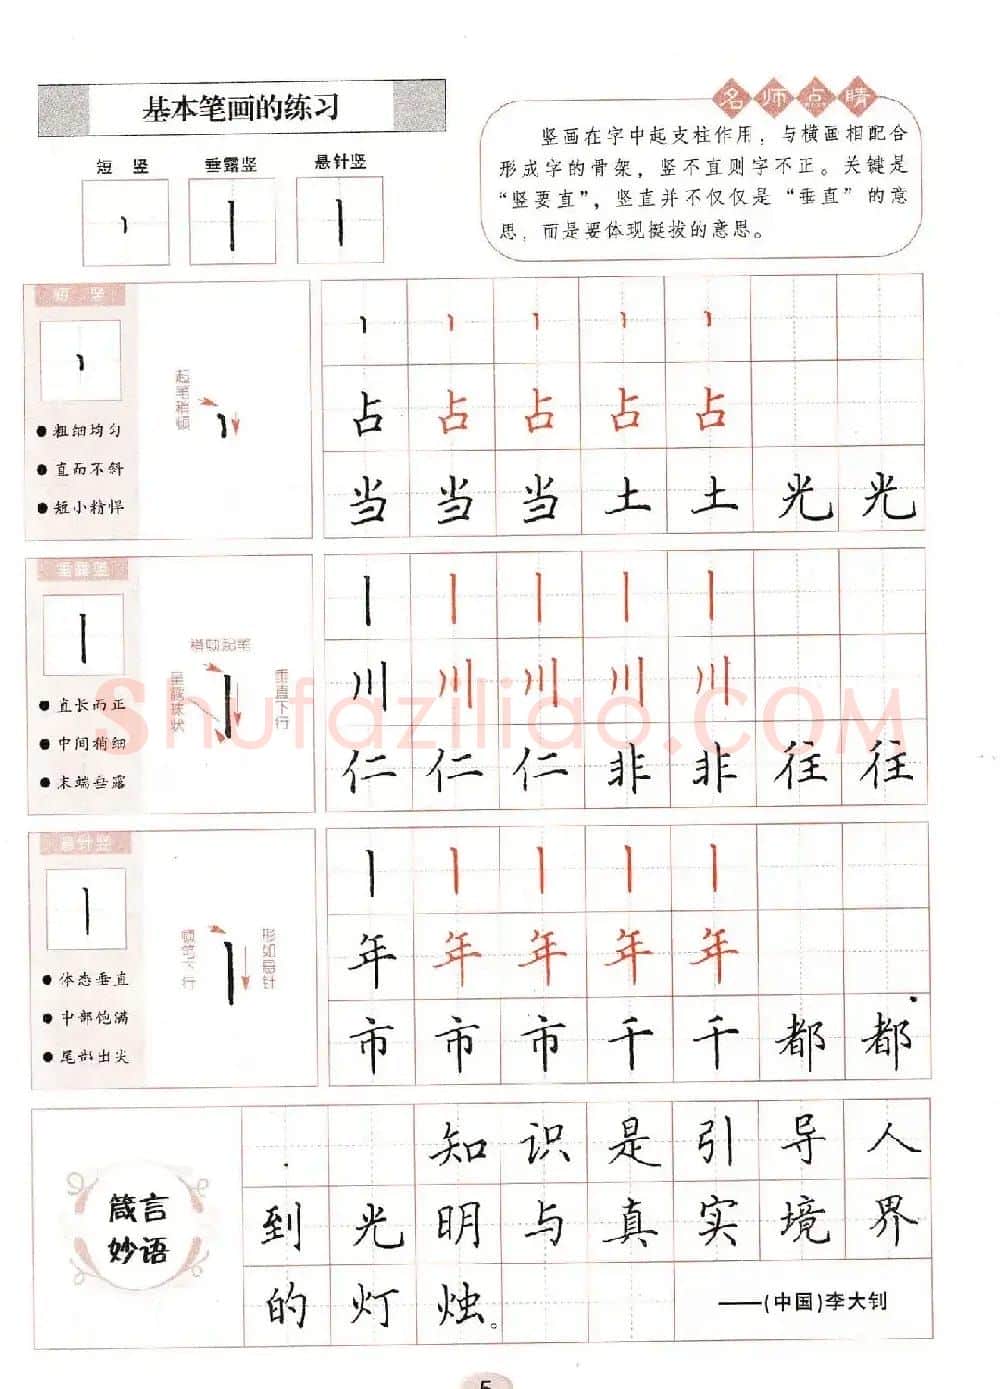 基本笔画的练习
短 竖
垂露竖
悬针竖
名师点睛
竖画在字中起支柱作用，与横画相配合
形成字的骨架，竖不直则字不正。关键是
“竖要直”，竖直并不仅仅是“垂直”的意
思，而是要体现挺拔的意思。
短 竖
起笔稍顿
●粗细均匀
●直而不斜
●短小精悍
占占占占占
当当当土土光光
垂露竖
稍顿起笔
呈露珠状
垂直下行
●直长而正
●中间稍细
●末端垂露
川川川川川
仁仁仁非非往往
悬针竖
顿笔下行
形如悬针
●体态垂直
●中部饱满
●尾部出尖
年年年年年
市市市千千都都
箴言
妙语
知识是引导人
到光明与真实境界
的灯烛。
——(中国)李大钊
shufaziliao.COM
5